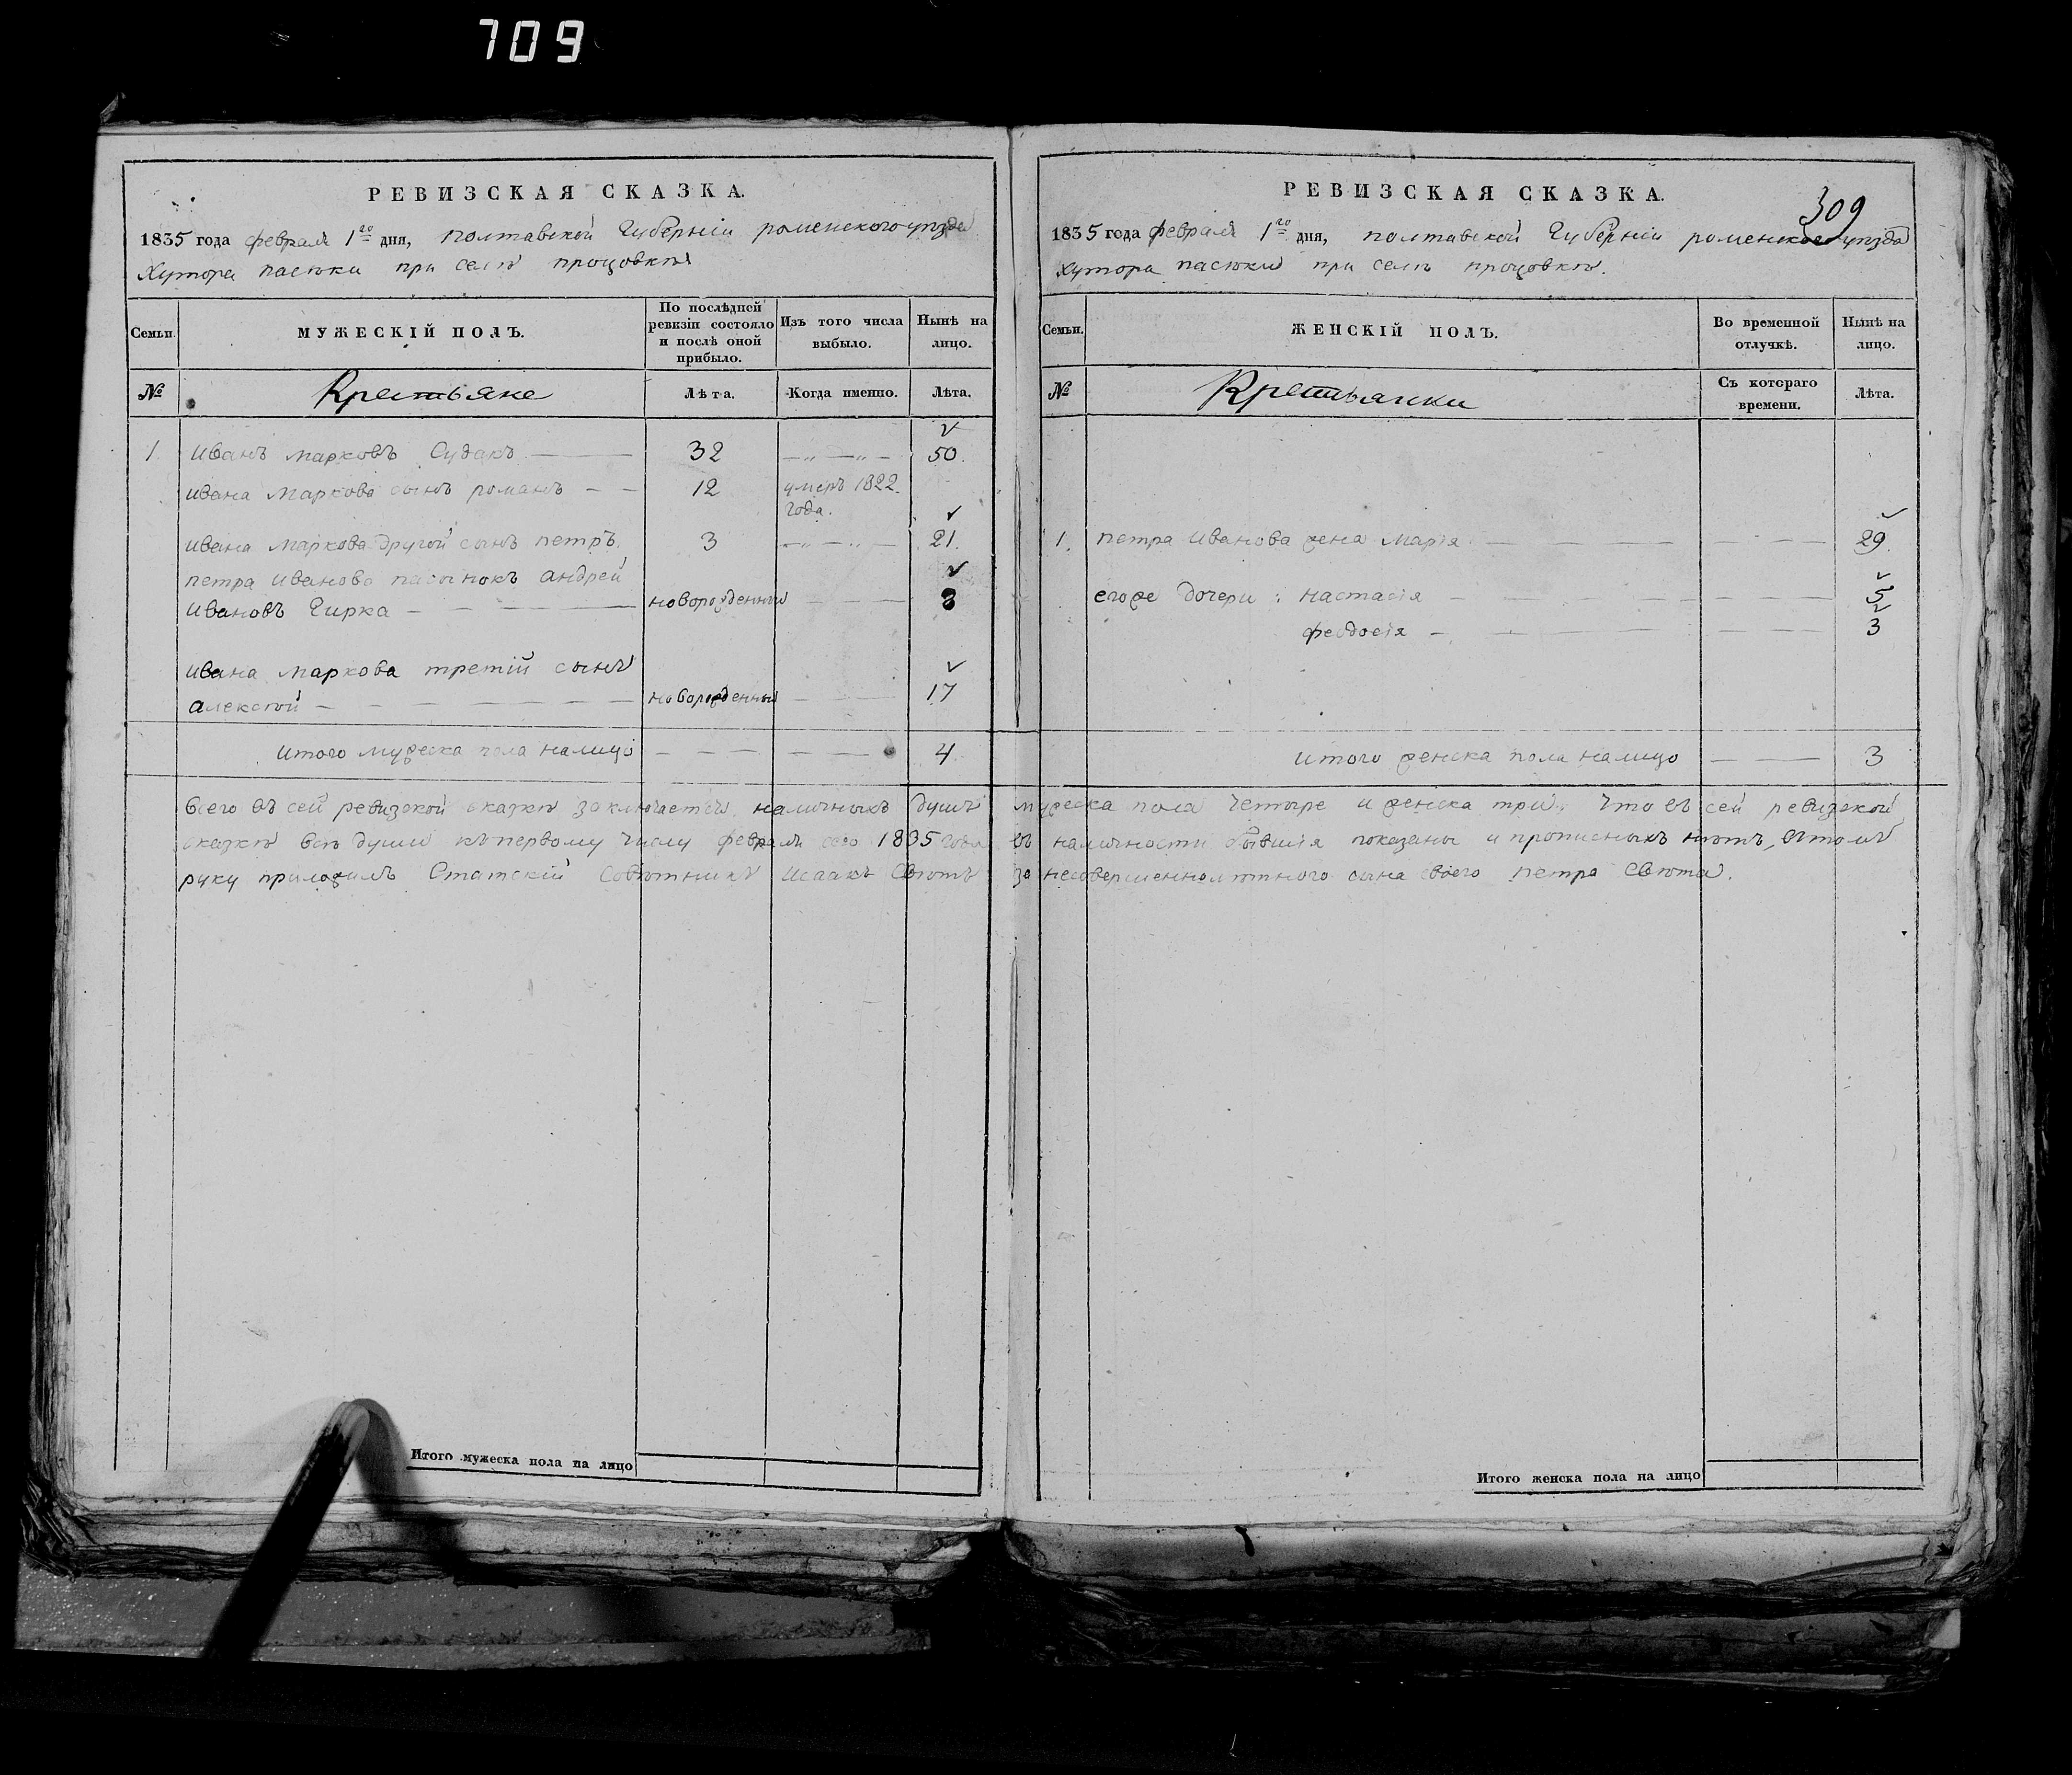 709
РЕВИЗСКАЯ СКАЗКА.
1835 года февраля 1го дня, полтавской Губерніи роменского уѣзда
Хутора пасѣки при селѣ процовкѣ
Семьи.
МУЖЕСКІЙ ПОЛЪ.
По послѣдней ревизіи состояло и послѣ оной прибыло.
Изъ того числа выбыло.
Нынѣ на лицо.
№
Крестьяне
Лѣта.
Когда именно.
Лѣта.
1 Иванъ Марковъ Судакъ 32 50.
Ивана Маркова сынъ романъ 12 умеръ 1822. года.
Ивана Маркова другой сынъ петръ. 3 21.
петра Иванова пасынокъ андрей
Ивановъ Гирка новорожденный 8
Ивана Маркова третій сынъ
алексѣй новорожденный 17
Итого мужеска пола налицо 4
309
РЕВИЗСКАЯ СКАЗКА.
1835 года февраля 1го дня, полтавской Губерніи роменского уѣзда
Хутора пасѣки при селѣ процовкѣ.
Семьи.
ЖЕНСКІЙ ПОЛЪ.
Во временной отлучкѣ.
Нынѣ на лицо.
№
Крестьянки
Съ котораго времени.
Лѣта.
1. петра Иванова жена Марія 29.
егоже дочери: настасія 5
феодосія 3
Итого женска пола налицо 3
Всего въ сей ревизской сказкѣ заключается наличныхъ душъ мужеска пола четыре и женска три. Что въ сей ревизской
сказкѣ всѣ души къ первому числу февраля сего 1835 года въ наличности бывшія показаны и прописныхъ нѣтъ, въ томъ
руку приложилъ Статскій Совѣтникъ Исаакъ Свѣтъ за несовершеннолѣтнего сына своего петра Свѣта.
Итого мужеска пола на лицо
Итого женска пола на лицо